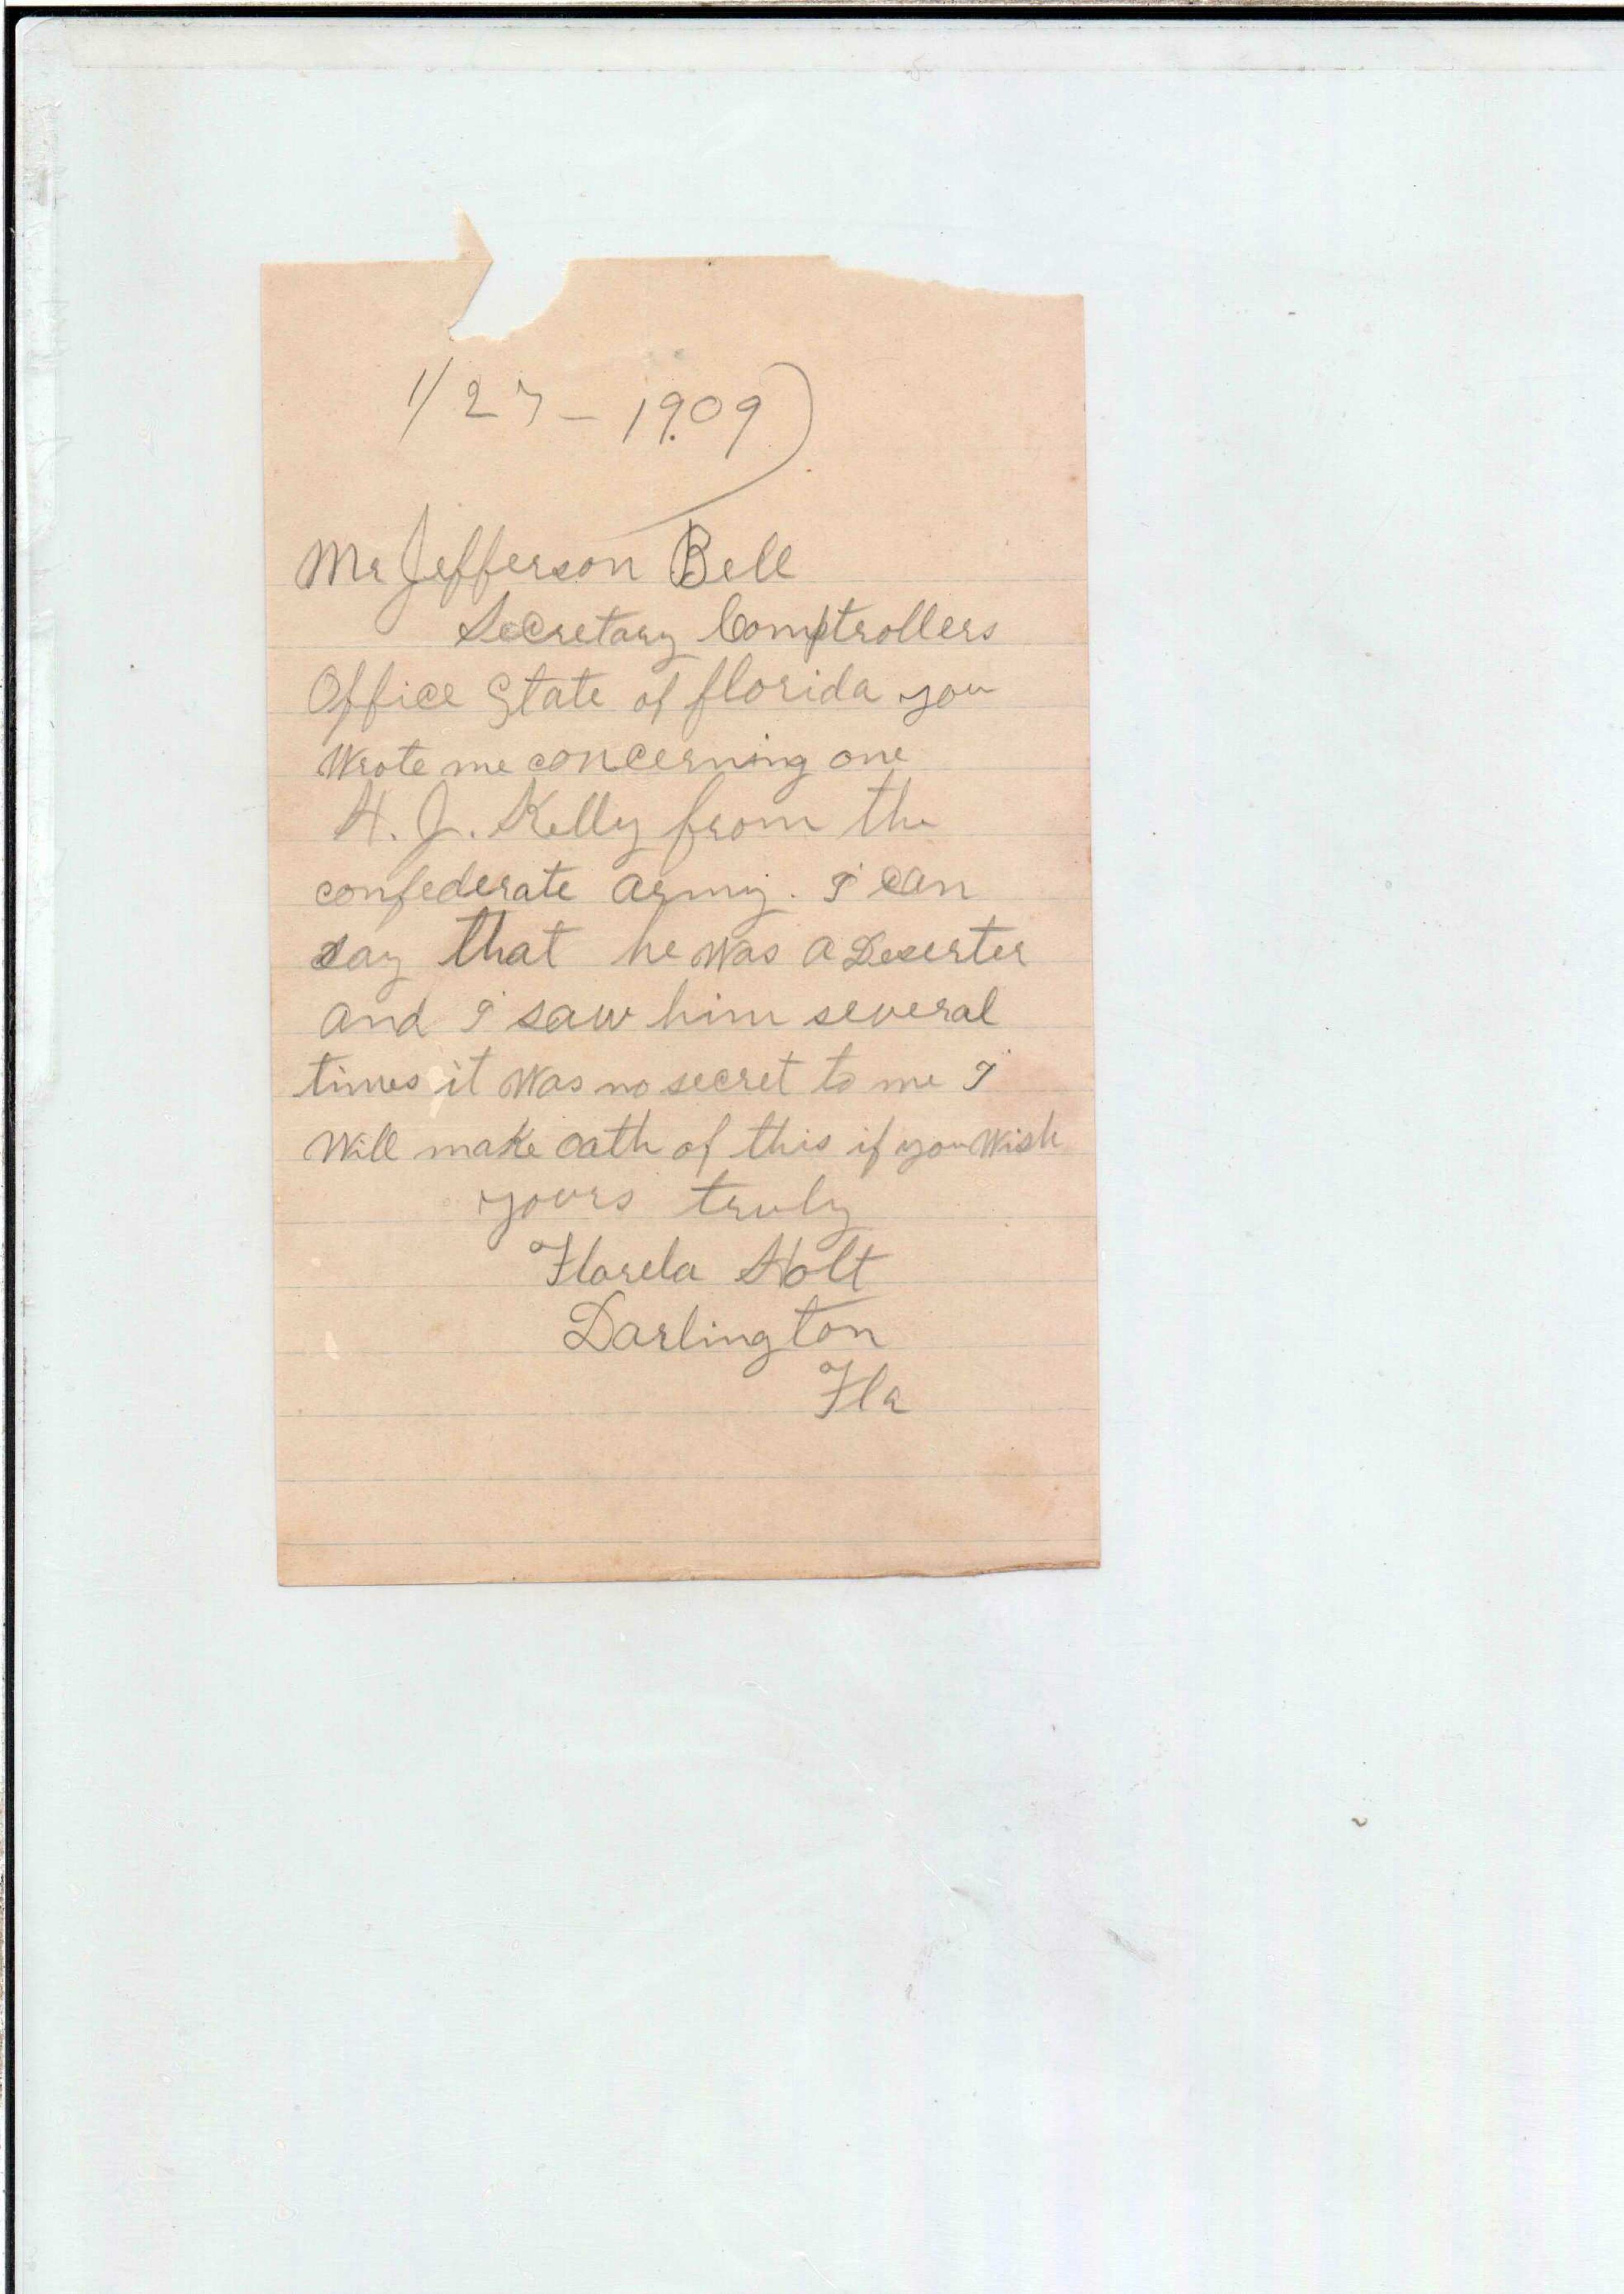 1/27-1909
Mr Jefferson Bell
Secretary Comptrollers
Office State of florida you
Wrote me concerning one
H. J. Kelly from the
confederate army. I can
say that he was a Deserter
and I saw him several
times it was no secret to me I
Will make oath of this if you Wish
yours truly
Florela Holt
Darlington
Fla